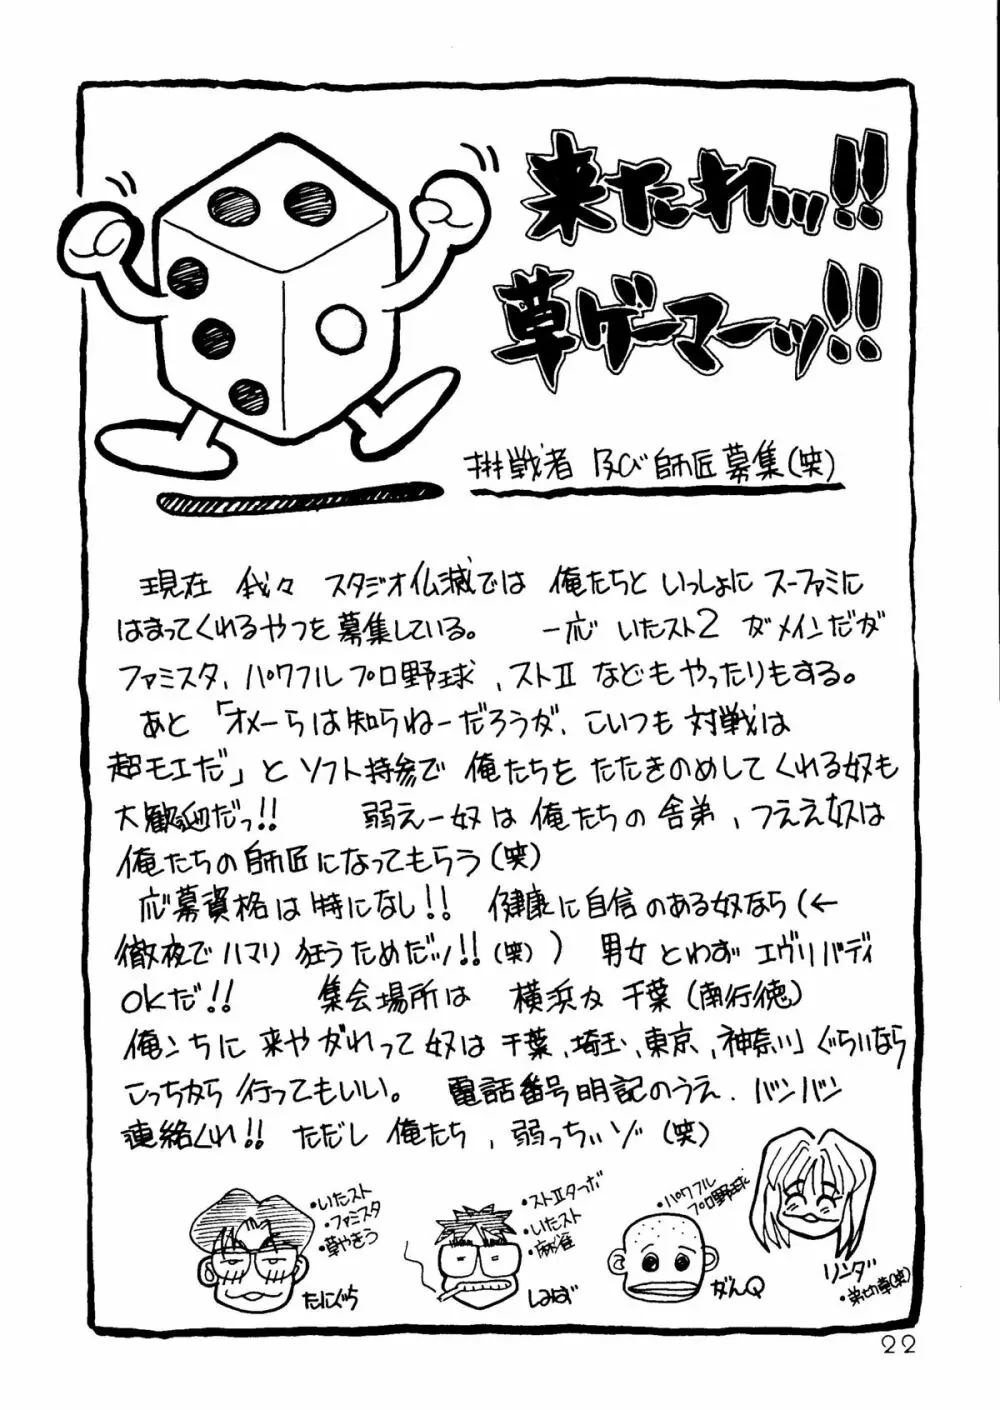 来たれッ!!
草ゲーマーッ!!
挑戦者 及び師匠募集(笑)
現在 我々 スタジオ仏滅では 俺たちと いっしょに スーファミに
はまってくれるやつを募集している。 一応 いたスト2 がメインだが
ファミスタ、パワフルプロ野球、ストII などもやったりもする。
あと「オメーらは知らねーだろうが、こいつも 対戦は
超モエだ」と ソフト持参で 俺たちを たたきのめしてくれる奴も
大歓迎だっ!! 弱えー奴は俺たちの 舎弟、つええ奴は
俺たちの師匠になってもらう(笑)
応募資格は特になし!! 健康に自信のある奴なら(←
徹夜でハマリ 狂うためだッ!!(笑)) 男女とわず エヴリバディ
OKだ!! 集会場所は 横浜か 千葉(南行徳)
俺ンちに 来やがれって奴は 千葉、埼玉、東京、神奈川ぐらいなら
こっちから 行ってもいい。 電話番号明記のうえ、バンバン
連絡くれ!! ただし 俺たち、弱っちぃゾ(笑)
・いたスト
・ファミスタ
・草やきう
たにぐち
・ストIIターボ
・いたスト
・麻雀
しみず
・パワフル
プロ野球
がんQ
リンダ
・弟切草(笑)
22